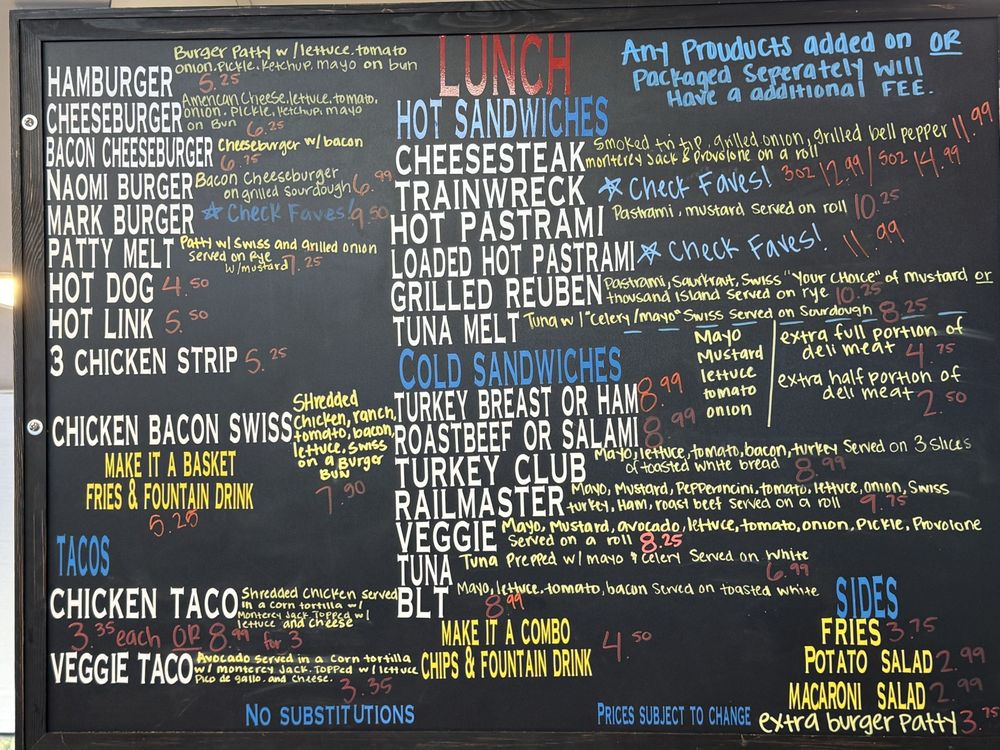 HAMBURGER Burger Patty w/ lettuce, tomato
onion, pickle, ketchup, mayo on bun
5.25
CHEESEBURGER American Cheese, lettuce, tomato,
onion, pickle, ketchup, mayo
on Bun 6.25
BACON CHEESEBURGER Cheeseburger w/ bacon
6.75
NAOMI BURGER Bacon Cheeseburger
on grilled sourdough 6.99
MARK BURGER ☆ Check Faves! 9.50
PATTY MELT Patty w/ Swiss and grilled onion
Served on Rye
w/mustard 7.25
HOT DOG 4.50
HOT LINK 5.50
3 CHICKEN STRIP 5.25
CHICKEN BACON SWISS Shredded
chicken, ranch,
tomato, bacon,
lettuce, Swiss
on a Burger
Bun
7.90
MAKE IT A BASKET
FRIES & FOUNTAIN DRINK
5.25
TACOS
CHICKEN TACO Shredded Chicken served
in a corn tortilla w/
Monterey Jack Topped w/
lettuce and cheese
3.35 each OR 8.99 for 3
VEGGIE TACO Avocado served in a corn tortilla
w/ monterey Jack. Topped w/ lettuce
Pico de gallo. and cheese.
3.35
NO SUBSTITUTIONS
LUNCH
Any Prouducts added on OR
Packaged Seperately will
Have a additional FEE.
HOT SANDWICHES
CHEESESTEAK Smoked tri tip, grilled onion, grilled bell pepper 11.99
monterey Jack & Provolone on a roll
TRAINWRECK ☆ Check Faves! 3oz 12.99/5oz 14.99
HOT PASTRAMI Pastrami, mustard Served on roll 10.25
LOADED HOT PASTRAMI ☆ Check Faves! 11.99
GRILLED REUBEN Pastrami, Saurkraut, Swiss "Your Choice" of mustard or
thousand Island Served on rye 10.25
TUNA MELT Tuna w/ "celery/mayo" Swiss Served on Sourdough 8.25
COLD SANDWICHES
Mayo
Mustard
lettuce
tomato
onion
extra full portion of
deli meat 4.75
extra half portion of
deli meat 2.50
TURKEY BREAST OR HAM 8.99
ROASTBEEF OR SALAMI 8.99
TURKEY CLUB Mayo, lettuce, tomato, bacon, turkey Served on 3 slices
of toasted white bread 8.99
RAILMASTER Mayo, Mustard, Pepperoncini, tomato, lettuce, onion, Swiss
turkey, Ham, roast beef Served on a roll 9.75
VEGGIE Mayo, Mustard, avocado, lettuce, tomato, onion, Pickle, Provolone
Served on a roll 8.25
TUNA Tuna Prepped w/ mayo & celery Served on white
6.99
BLT Mayo, lettuce, tomato, bacon Served on toasted white
8.99
MAKE IT A COMBO
CHIPS & FOUNTAIN DRINK 4.50
SIDES
FRIES 3.75
POTATO SALAD 2.99
MACARONI SALAD 2.99
extra burger Patty 3.75
PRICES SUBJECT TO CHANGE